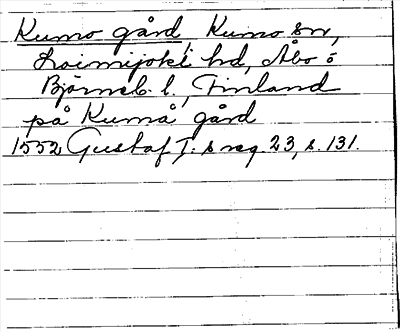 Kumo gård Kumo sn,
Loimijoki hd, Åbo o
Björneb. l., Finland
på Kumå gård
1552 Gustaf I:s reg. 23, s. 131.